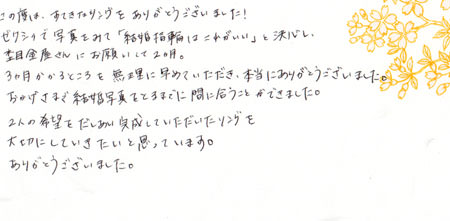 この度は、すてきなリングをありがとうございました！
ゼクシィで写真をみて「結婚指輪はこれがいい」と決心し、
杢目金屋さんにお願いして2ヵ月。
3ヵ月かかるところを無理に早めていただき、本当にありがとうございました。
おかげさまで結婚写真をとるまでに間に合うことができました。
2人の希望をだしあい完成していただいたリングを
大切にしていきたいと思っています。
ありがとうございました。